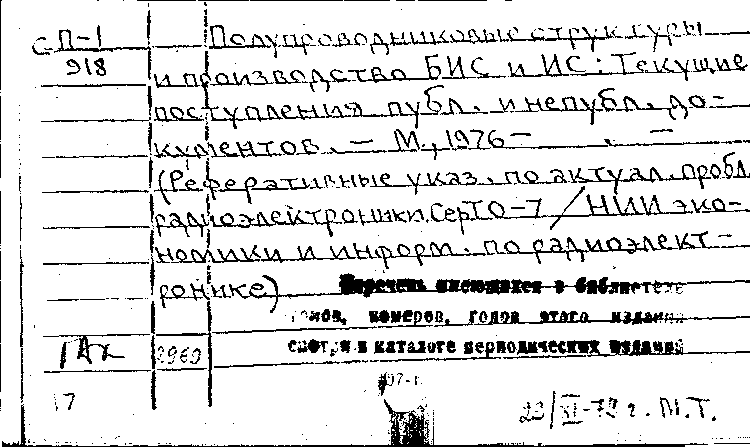 С П-1
918
Полупроводниковые структуры
и производство БИС и ИС: Текущие
поступления публ. и непубл. до-
кументов. – М., 1976 –      . –
(Реферативные указ. по актуал. пробл.
радиоэлектроники. Сер ТО-7 / НИИ эко-
номики и информ. по радиоэлект-
ронике)
Перечень имеющихся в библиотеке
томов, номеров, годов этого издания
смотри в каталоге периодических изданий
3960
17
23/XI-78 г. М.Т.